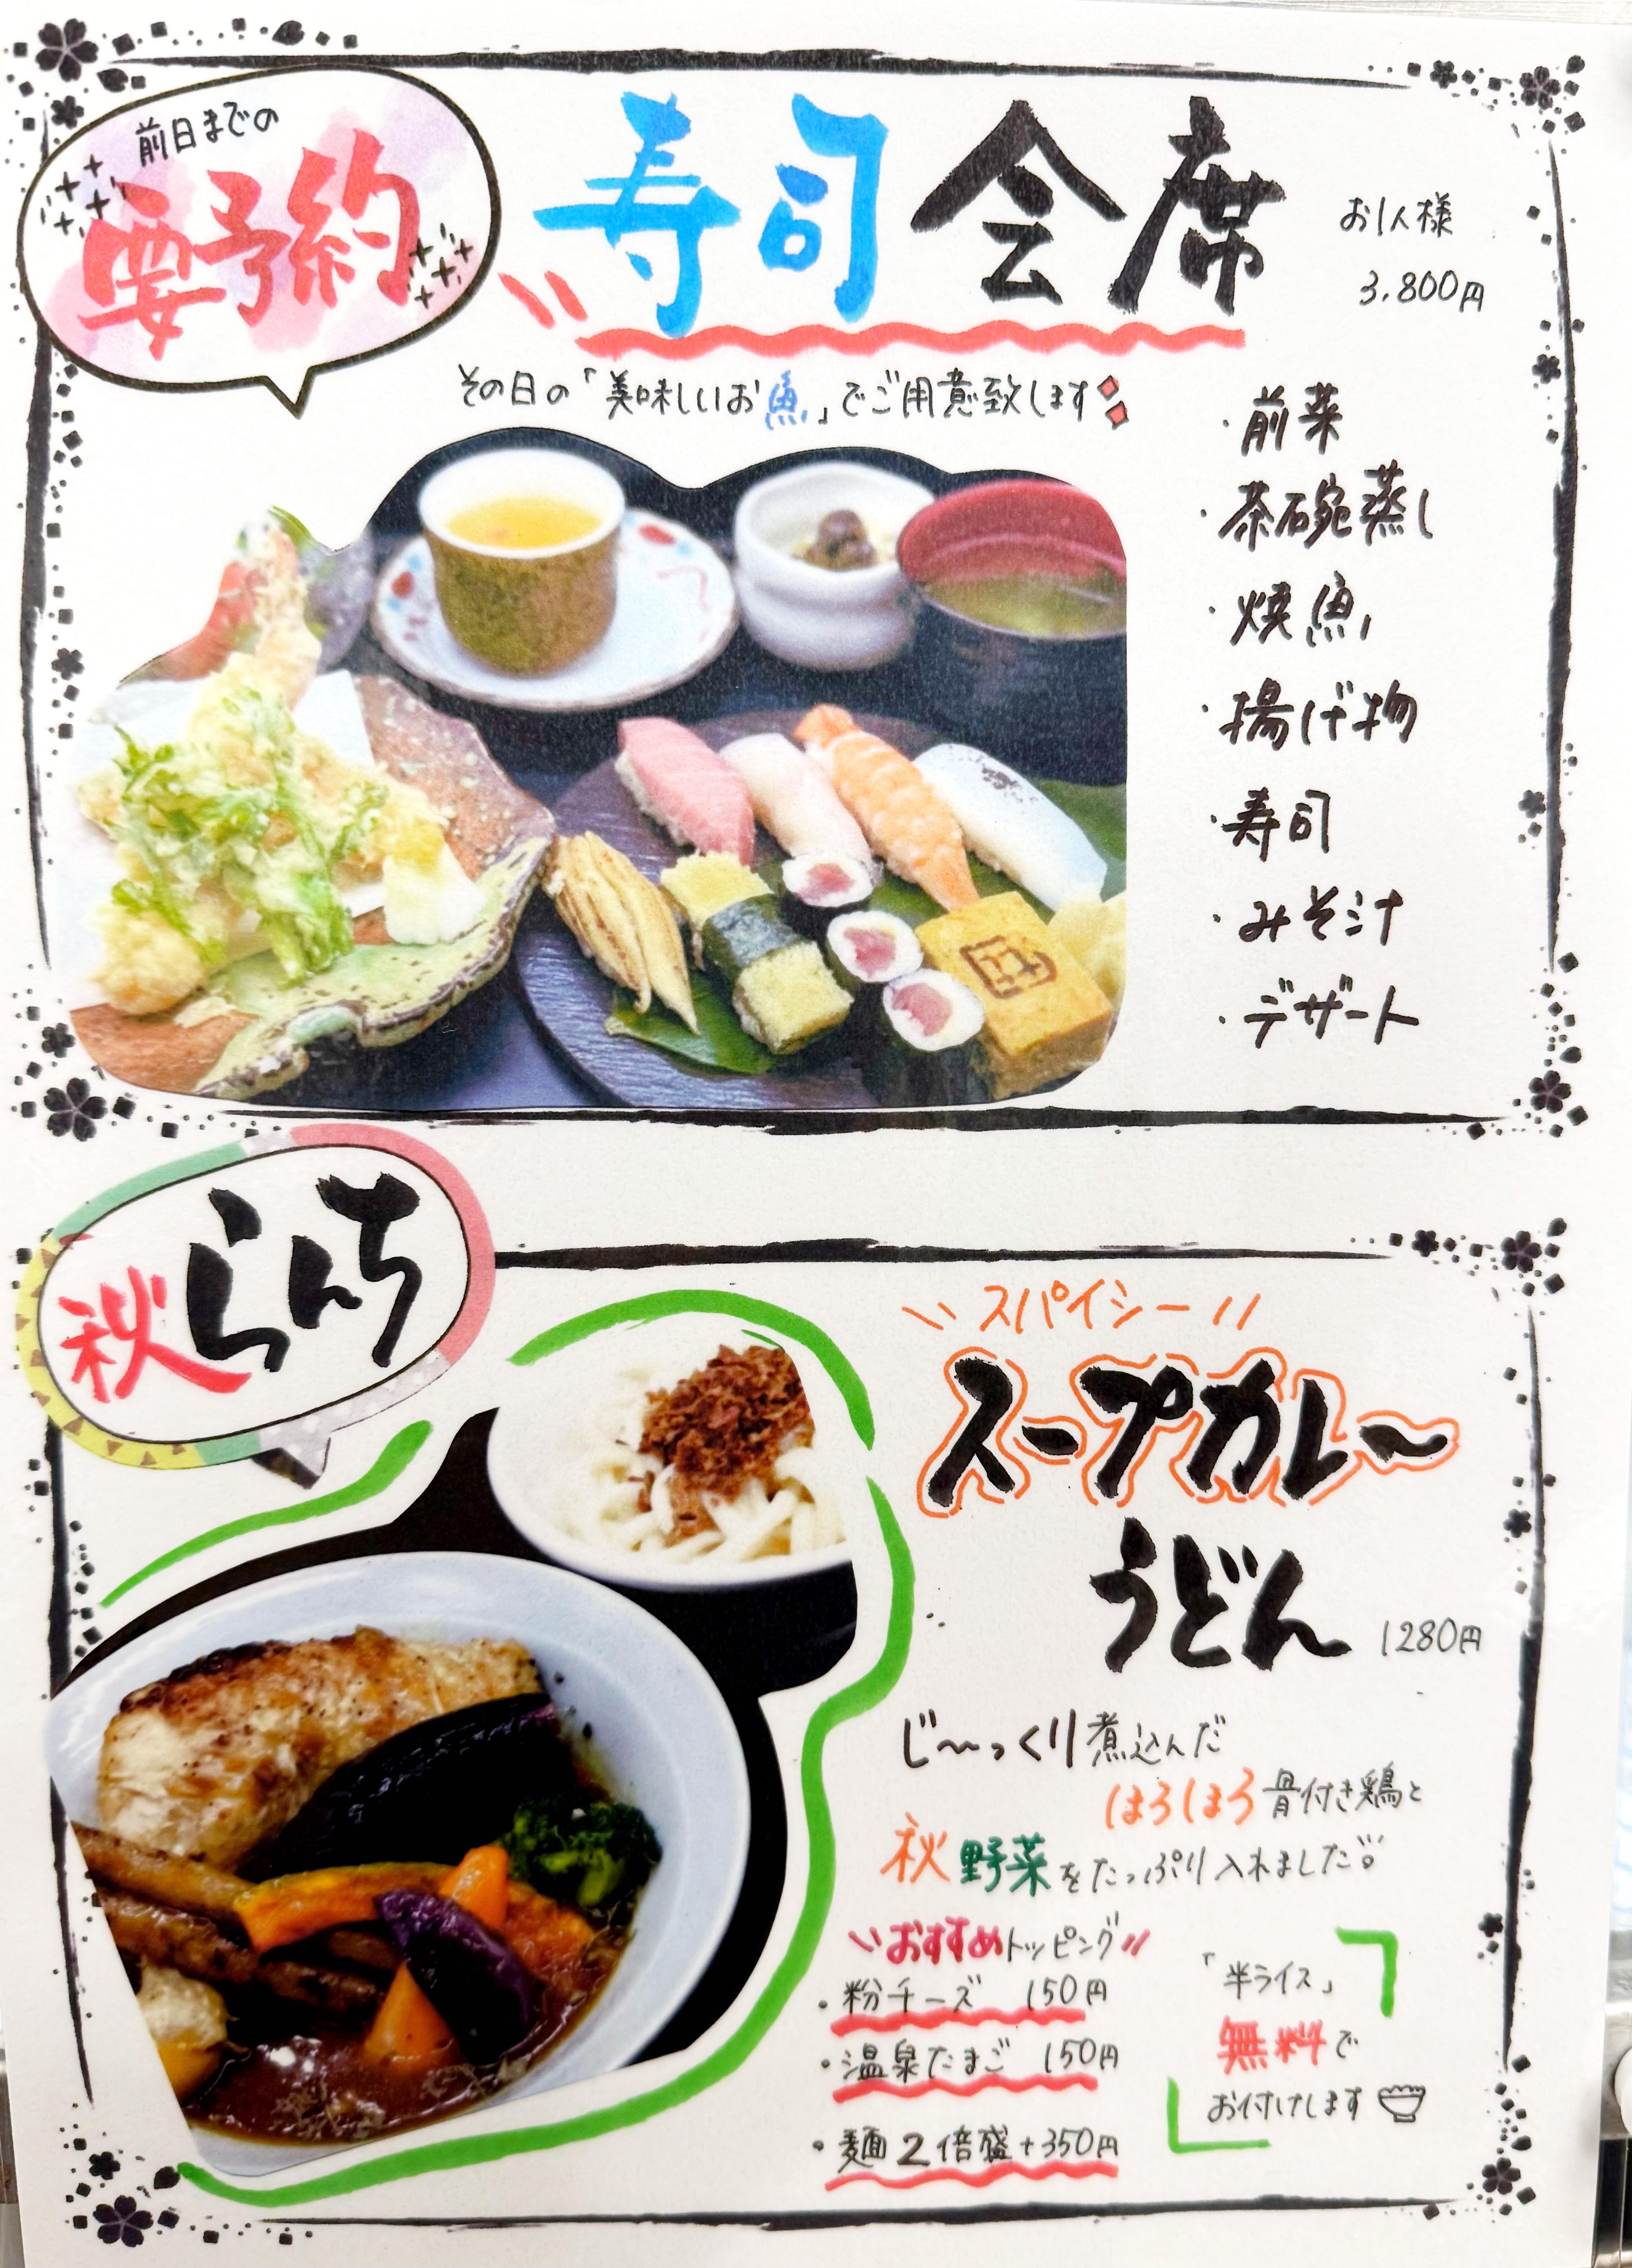 前日までの
要予約
寿司会席
お1人様
3,800円
その日の「美味しいお魚」でご用意致します
・前菜
・茶碗蒸し
・焼魚
・揚げ物
・寿司
・みそ汁
・デザート
秋らんち
スパイシー
スープカレー
うどん
1280円
じ〜っくり煮込んだ
ほろほろ骨付き鶏と
秋野菜をたっぷり入れました
おすすめトッピング
・粉チーズ 150円
・温泉たまご 150円
・麺2倍盛+350円
「半ライス」
無料で
お付けします